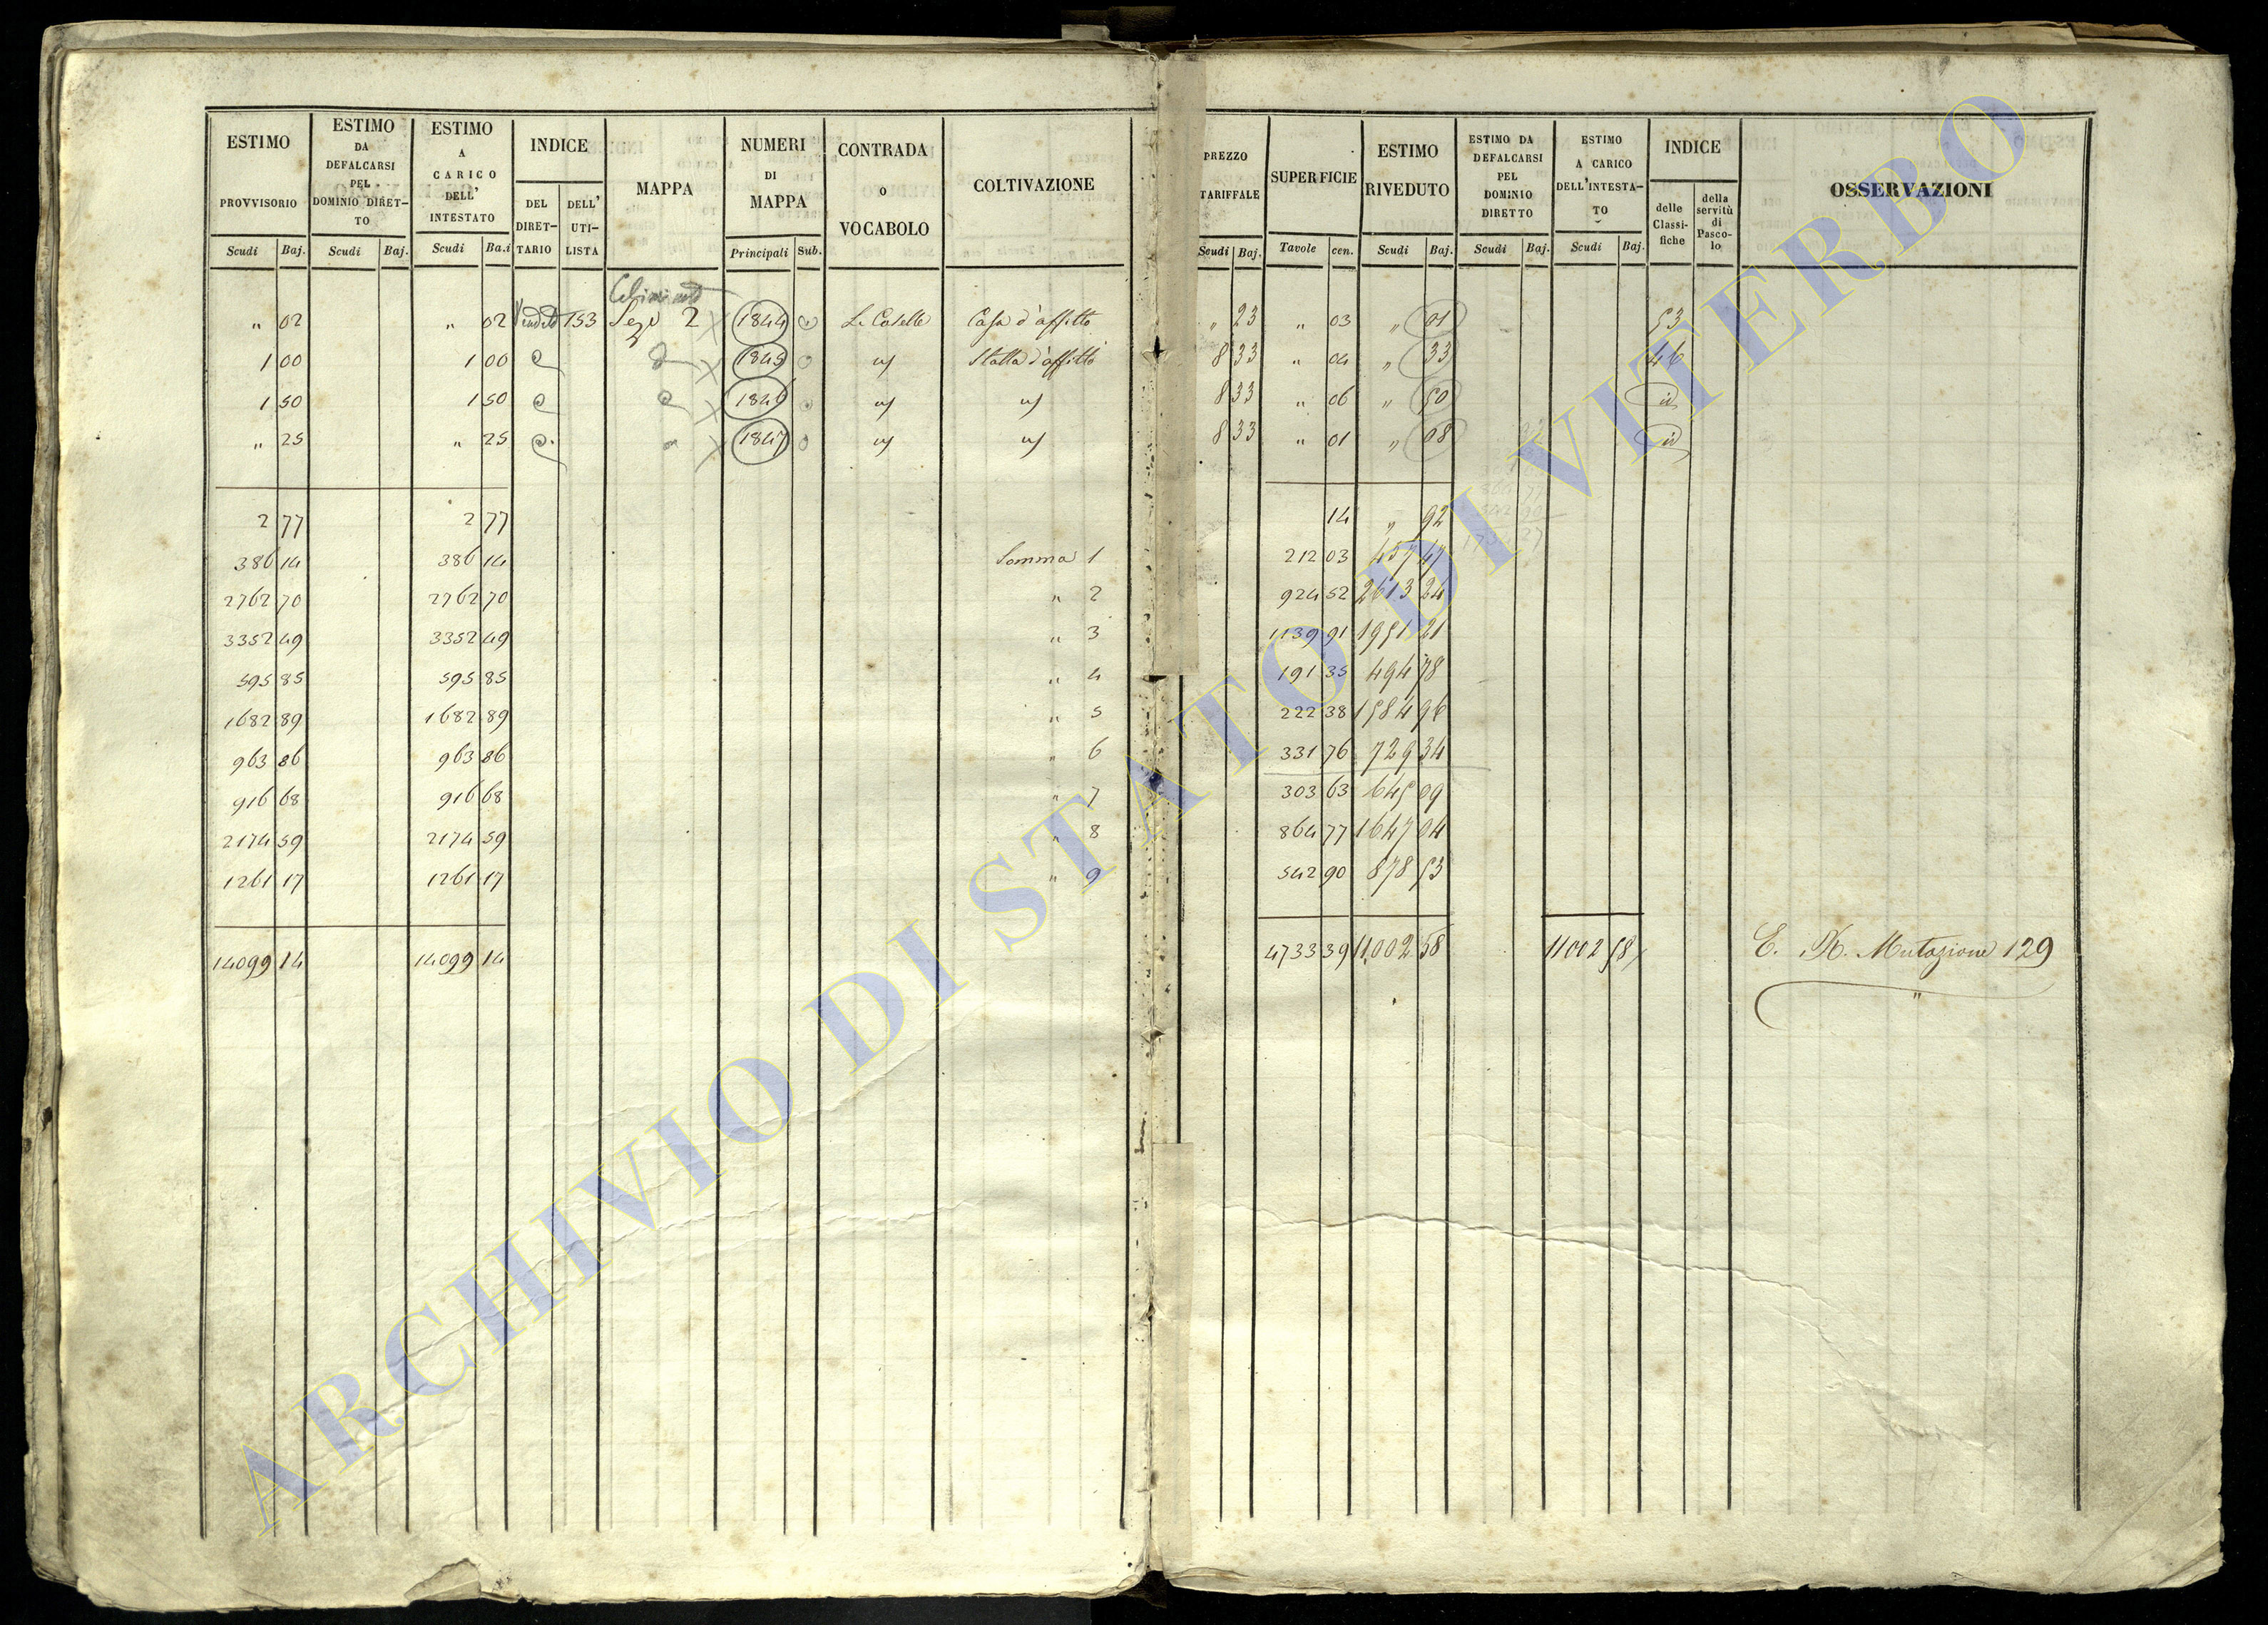 ESTIMO PROVVISORIO Scudi Baj.
ESTIMO DA DEFALCARSI PEL DOMINIO DIRET-TO Scudi Baj.
ESTIMO A CARICO DELL' INTESTATO Scudi Ba.i
INDICE DEL DIRET-TARIO DELL' UTI-LISTA
MAPPA
NUMERI DI MAPPA Principali Sub.
CONTRADA O VOCABOLO
COLTIVAZIONE
PREZZO TARIFFALE Scudi Baj.
SUPERFICIE Tavole cen.
ESTIMO RIVEDUTO Scudi Baj.
ESTIMO DA DEFALCARSI PEL DOMINIO DIRETTO Scudi Baj.
ESTIMO A CARICO DELL'INTESTA-TO Scudi Baj.
INDICE delle Classi-fiche della servitù di Pasco-lo
OSSERVAZIONI
" 02 " 02 153 Sez. 2 1844 Le Caselle Casa d'affitto " 23 " 03 " 01 53
1 00 1 00 1845 Stalla d'affitto 8 33 " 04 " 33 46
1 50 1 50 1846 8 33 " 06 " 50 id
" 25 " 25 1847 8 33 " 01 " 08 id
2 77 2 77 14 " 92
386 14 386 14 Somma 1 212 03 457 47
2762 70 2762 70 " 2 924 52 2613 24
3352 49 3352 49 " 3 1139 91 1951 21
595 85 595 85 " 4 191 35 494 78
1682 89 1682 89 " 5 222 38 1584 96
963 86 963 86 " 6 331 76 729 34
916 68 916 68 " 7 303 63 645 09
2174 59 2174 59 " 8 864 77 1647 04
1261 17 1261 17 " 9 542 90 878 53
14099 14 14099 14 4733 39 11,002 58 11002 58 Mutazione 129
ARCHIVIO DI STATO DI VITERBO